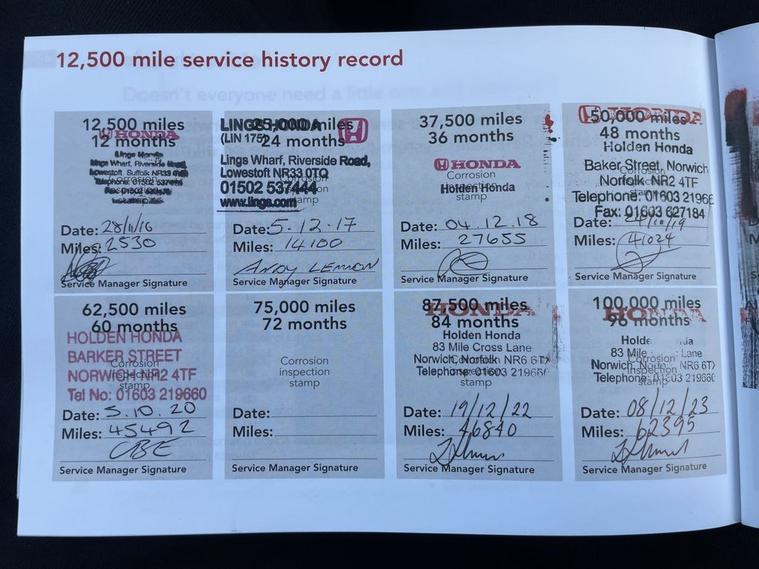 12,500 mile service history record
12,500 miles
12 months
HONDA
Lings Honda
Lings Wharf, Riverside Road,
Lowestoft Suffolk NR33 0TQ
Telephone: 01502
Date: 28/11/16
Miles: 2530
Service Manager Signature
LINGS HONDA 25,000 miles
(LIN 175) 24 months
Lings Wharf, Riverside Road,
Lowestoft NR33 0TQ
01502 537444
www.lings.com
stamp
Date: 5.12.17
Miles: 14100
ANDY LEMMON
Service Manager Signature
37,500 miles
36 months
HONDA
Corrosion
Holden Honda
stamp
Date: 04.12.18
Miles: 27655
Service Manager Signature
HONDA
50,000 miles
48 months
Holden Honda
Baker Street, Norwich
Norfolk NR2 4TF
Telephone: 01603 21966
Fax: 01603 627184
Date:
Miles: 41024
Service Manager Signature
62,500 miles
60 months
HOLDEN HONDA
BARKER STREET
NORWICH NR2 4TF
Tel No: 01603 219660
Date: 5.10.20
Miles: 45492
Service Manager Signature
75,000 miles
72 months
Corrosion
inspection
stamp
Date:
Miles:
Service Manager Signature
87,500 miles
HONDA
84 months
Holden Honda
83 Mile Cross Lane
Norwich, Norfolk NR6 6TX
Telephone: 01603 21966
Date: 19/12/22
Miles: 46840
Service Manager Signature
100,000 miles
HONDA
96 months
83 Mile Lane
Norwich, NR6 6TX
Telephone: 01603 219660
stamp
Date: 08/12/23
Miles: 62395
Service Manager Signature